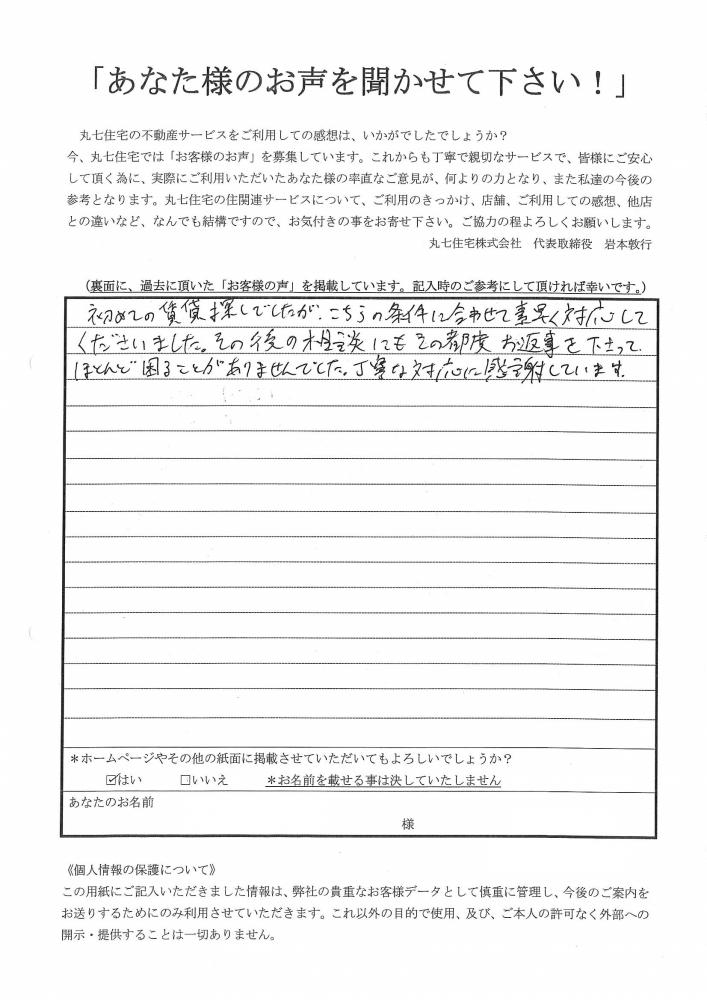 「あなた様のお声を聞かせて下さい！」
丸七住宅の不動産サービスをご利用しての感想は、いかがでしたでしょうか？
今、丸七住宅では「お客様のお声」を募集しています。これからも丁寧で親切なサービスで、皆様にご安心
して頂く為に、実際にご利用いただいたあなた様の率直なご意見が、何よりの力となり、また私達の今後の
参考となります。丸七住宅の住関連サービスについて、ご利用のきっかけ、店舗、ご利用しての感想、他店
との違いなど、なんでも結構ですので、お気付きの事をお寄せ下さい。ご協力の程よろしくお願いします。
丸七住宅株式会社　代表取締役　岩本敦行
（裏面に、過去に頂いた「お客様の声」を掲載しています。記入時のご参考にして頂ければ幸いです。）
初めての賃貸探しでしたが、こちらの条件に合わせて素早く対応して
くださいました。その後の相談にもその都度お返事を下さって、
ほとんど困ることがありませんでした。丁寧な対応に感謝しています。
＊ホームページやその他の紙面に掲載させていただいてもよろしいでしょうか？
☑はい　□いいえ　＊お名前を載せる事は決していたしません
あなたのお名前
様
《個人情報の保護について》
この用紙にご記入いただきました情報は、弊社の貴重なお客様データとして慎重に管理し、今後のご案内を
お送りするためにのみ利用させていただきます。これ以外の目的で使用、及び、ご本人の許可なく外部への
開示・提供することは一切ありません。